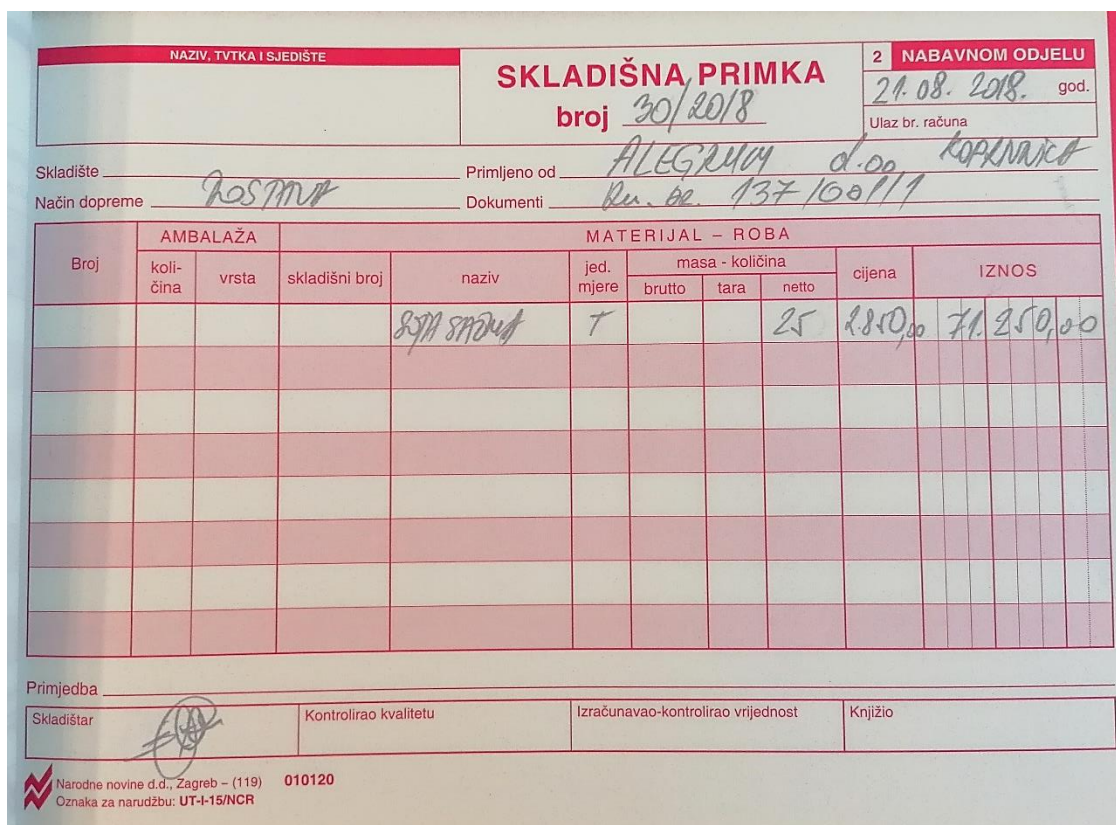 NAZIV, TVTKA I SJEDIŠTE
SKLADIŠNA PRIMKA
broj 30/2018
2 NABAVNOM ODJELU
21. 08. 2018. god.
Ulaz br. računa
Skladište
Primljeno od d.oo KOPRIVNICA
Način dopreme DOSTAVA
Dokumenti Ru. br. 137/001/1
Broj
AMBALAŽA
koli-
čina
vrsta
MATERIJAL – ROBA
skladišni broj
naziv
jed.
mjere
masa - količina
brutto
tara
netto
cijena
IZNOS
T 25 2.850,00 71.250,00
Primjedba
Skladištar
Kontrolirao kvalitetu
Izračunavao-kontrolirao vrijednost
Knjižio
Narodne novine d.d., Zagreb – (119) 010120
Oznaka za narudžbu: UT-I-15/NCR